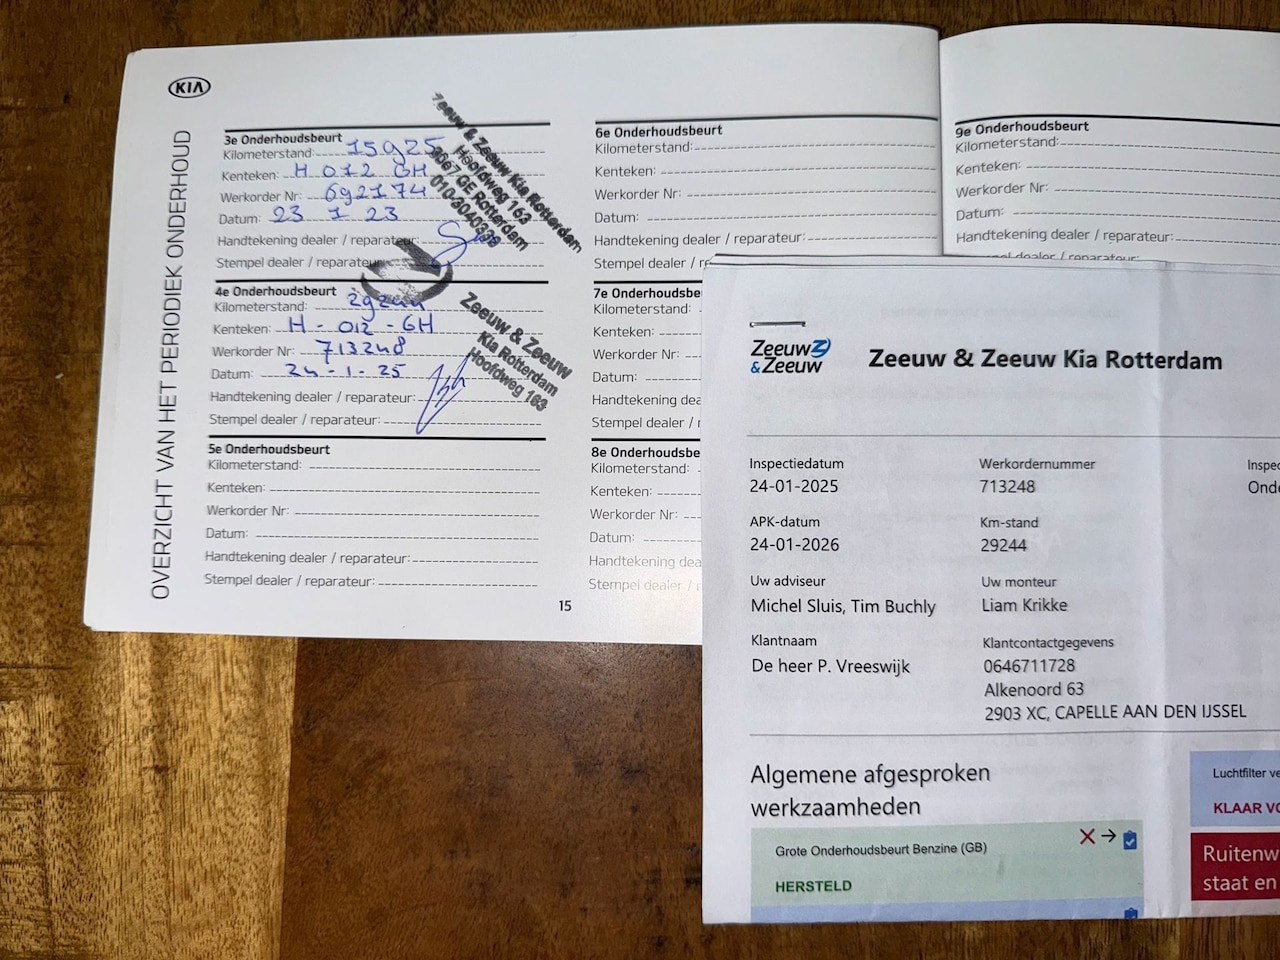 KIA
OVERZICHT VAN HET PERIODIEK ONDERHOUD
3e Onderhoudsbeurt
Kilometerstand: 15925
Kenteken: H 012 GH
Werkorder Nr: 692174
Datum: 23 1 23
Handtekening dealer / reparateur:
Stempel dealer / reparateur
Zeeuw & Zeeuw Kia Rotterdam
Hoofdweg 163
3067 GE Rotterdam
4e Onderhoudsbeurt
Kilometerstand: 29244
Kenteken: H - 012 - GH
Werkorder Nr: 713248
Datum: 24 - 1 - 25
Handtekening dealer / reparateur:
Stempel dealer / reparateur:
Zeeuw & Zeeuw
Kia Rotterdam
Hoofdweg 163
5e Onderhoudsbeurt
Kilometerstand:
Kenteken:
Werkorder Nr:
Datum:
Handtekening dealer / reparateur:
Stempel dealer / reparateur:
15
6e Onderhoudsbeurt
Kilometerstand:
Kenteken:
Werkorder Nr:
Datum:
Handtekening dealer / reparateur:
Stempel dealer / r
7e Onderhoudsbe
Kilometerstand:
Kenteken:
Werkorder Nr:
Datum:
Handtekening dea
Stempel dealer / r
8e Onderhoudsbe
Kilometerstand:
Kenteken:
Werkorder Nr:
Datum:
Handtekening dea
Stempel dealer / r
9e Onderhoudsbeurt
Kilometerstand:
Kenteken:
Werkorder Nr:
Datum:
Handtekening dealer / reparateur:
Zeeuw & Zeeuw
Zeeuw & Zeeuw Kia Rotterdam
Inspectiedatum
24-01-2025
Werkordernummer
713248
Inspec
Onde
APK-datum
24-01-2026
Km-stand
29244
Uw adviseur
Michel Sluis, Tim Buchly
Uw monteur
Liam Krikke
Klantnaam
De heer P. Vreeswijk
Klantcontactgegevens
0646711728
Alkenoord 63
2903 XC, CAPELLE AAN DEN IJSSEL
Algemene afgesproken
werkzaamheden
Grote Onderhoudsbeurt Benzine (GB)
HERSTELD
Luchtfilter ve
KLAAR VO
Ruitenw
staat en